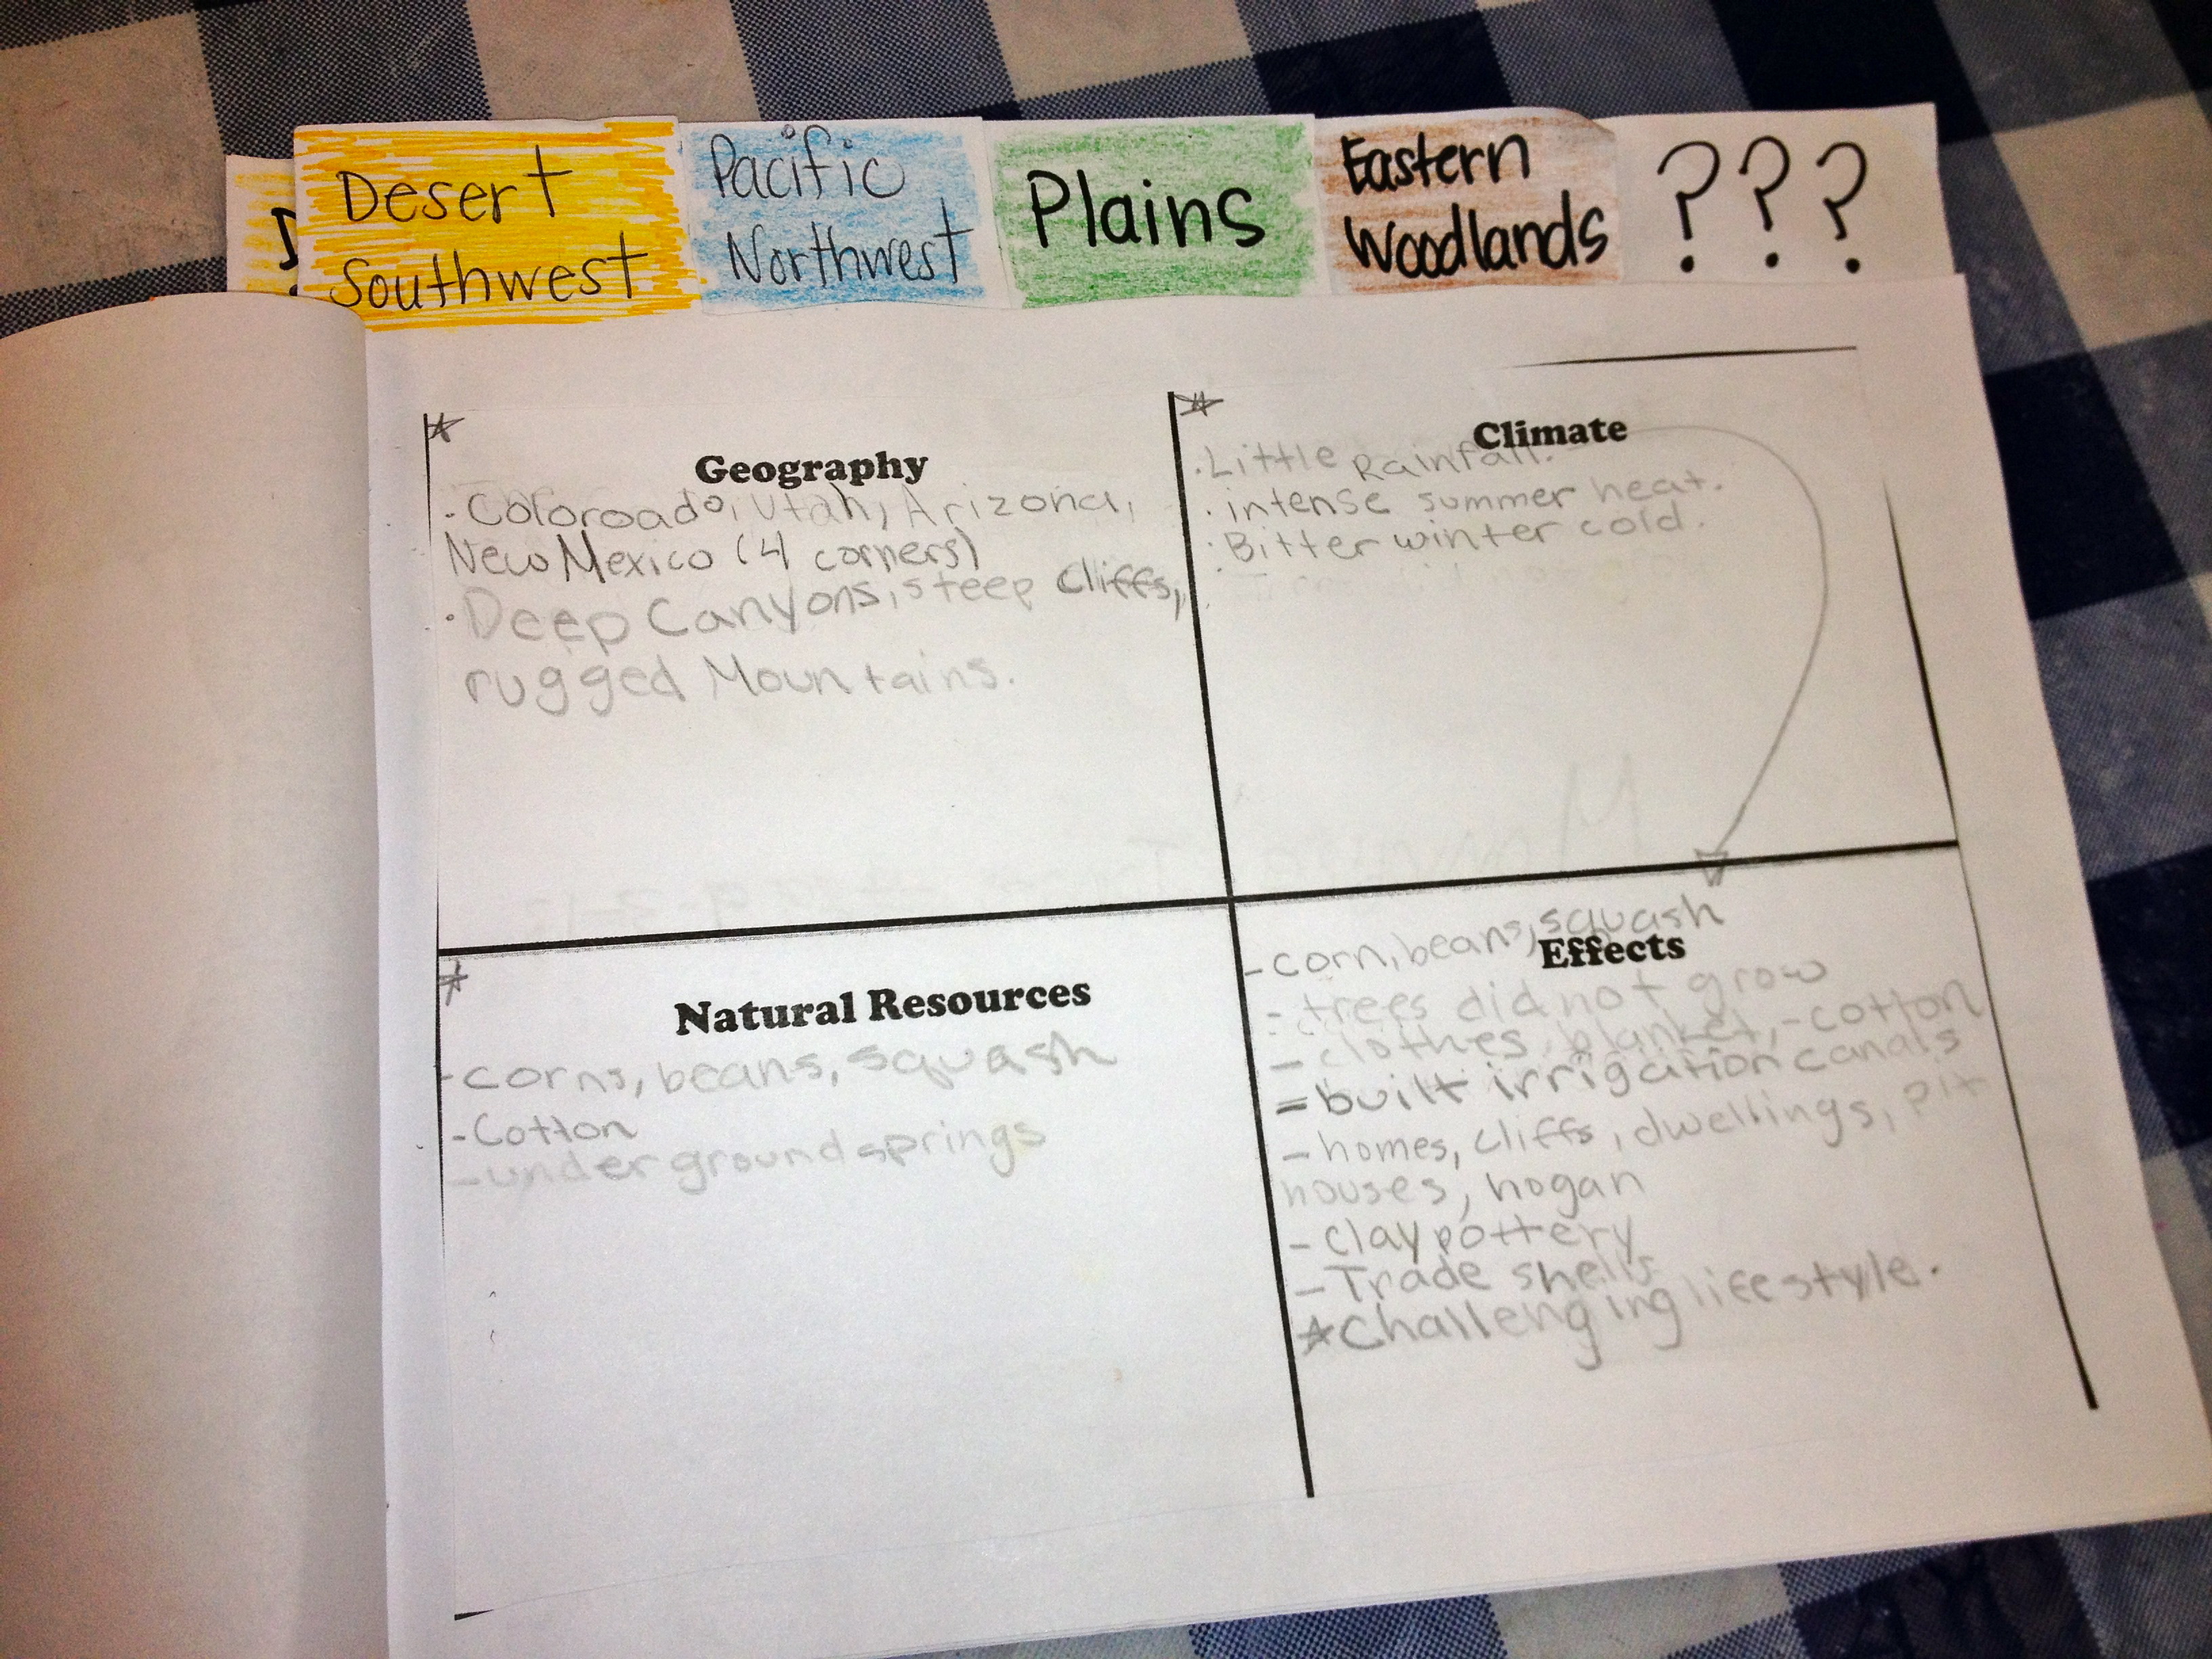 Desert
Southwest
Pacific
Northwest
Plains
Eastern
Woodlands
???
Geography
·Coloroado, Utah, Arizona,
New Mexico (4 corners)
·Deep Canyons, steep cliffs,
rugged Mountains.
Climate
·Little Rainfall.
·intense summer heat.
·Bitter winter cold.
Natural Resources
-corns, beans, squash
-Cotton
-underground springs
Effects
-corn, beans, squash
-trees did not grow
-clothes, blanket, -cotton
=built irrigation canals
-homes, cliffs, dwellings, pit
houses, hogan
-clay pottery
-Trade shells
☆Challenging lifestyle.